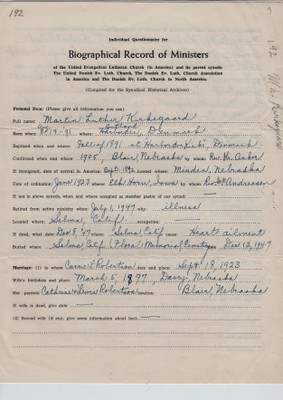 192
192 M. L. Kirkegaard
Individual Questionnaire for
Biographical Record of Ministers
of the United Evangelical Lutheran Church (in America) and its parent synods:
The United Danish Ev. Luth. Church, The Danish Ev. Luth. Church Association
in America and The Danish Ev. Luth. Church in North America.
(Compiled for the Synodical Historical Archives)
Personal Data: (Please give all information you can)
Full name: Martin Luther Kirkegaard
Born: 14-91 where: Denmark
Baptized when and where: Fall of 1891 at Denmark
Confirmed when and where: 1905, Blair, Nebraska by whom: Rev.
If immigrant, date of arrival in America: Sept. 1892 located where: Minden, Nebraska
Date of ordination: June 1923 where: Elk Horn, Iowa by whom: Rev. Andreasen
If not in above synods, when and where accepted as member pastor of said synods:
Retired from active ministry when: July 1, 1947 why: Illness
Located where: Selma, Calif. occupation:
If dead, what date: Dec. 8, 47 where: Selma Calif cause: Heart ailment
Buried where: Selma Calif. (Floral Memorial Cemetery) when: Dec. 12, 1947
Marriage: (1) to whom Carrie E Robertson date and place: Sept. 18, 1923
Wife's birthday and place: March 5, 1897, Nebraska
Her parents: Catherine & Lewis Robertson location: Blair, Nebraska
If wife is dead, give date
(2) Second wife (if any, give same information about her)